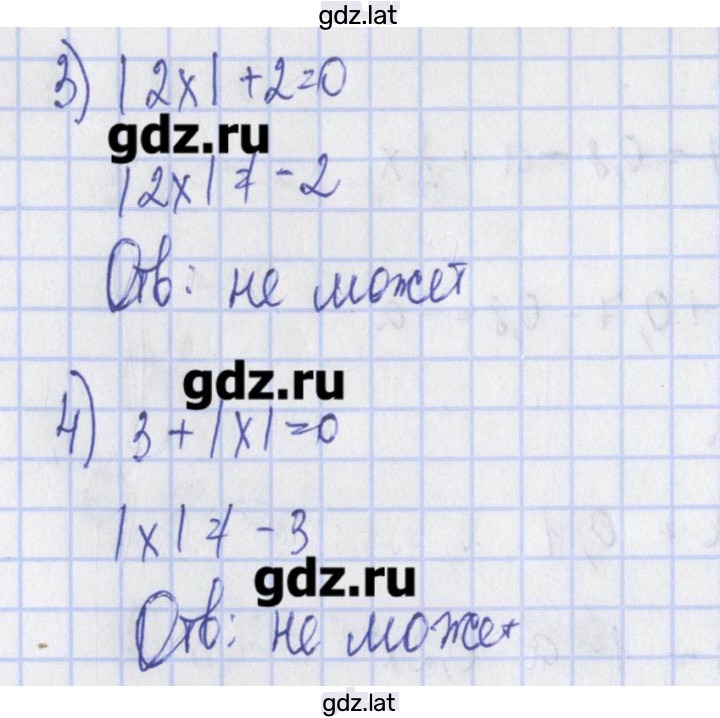 gdz.lat
3) |2x| + 2 = 0
gdz.ru
|2x| ≠ - 2
Отв: не может
gdz.ru
4) 3 + |x| = 0
|x| ≠ - 3
gdz.ru
Отв: не может
gdz.lat